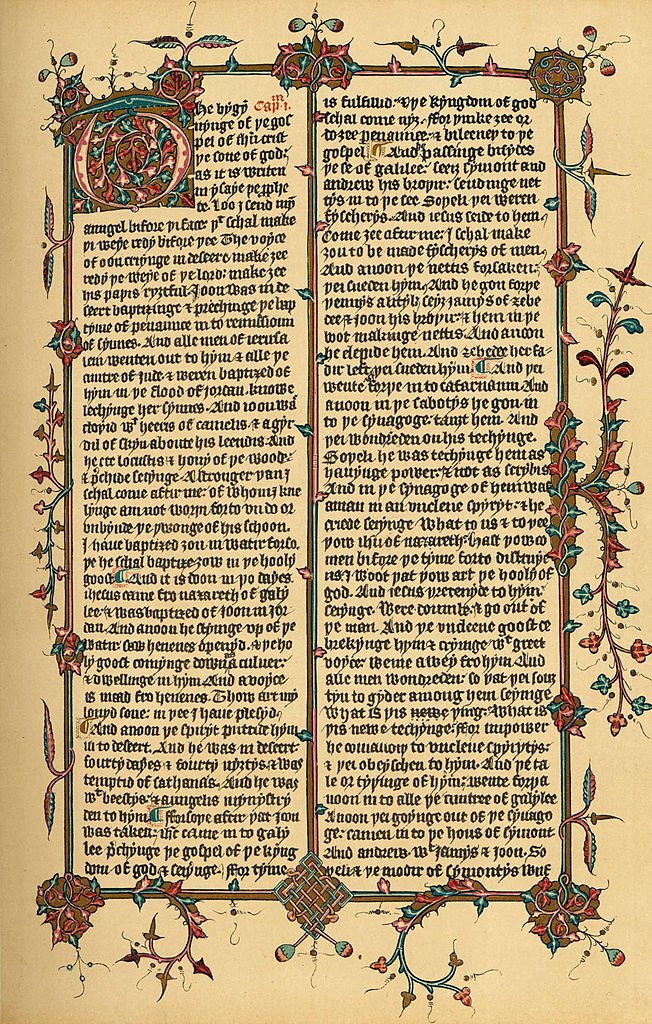 Cap. i.m
The bygȳ
nynge of þe gos
pel of ihū crist
þe sone of god:
as it is writen
in ysaye þe pphe
te. Loo j send my
aungel bifore þi face: þt schal make
þi weye redy bifore þee. The voyce
of oon cryinge in desert. make ȝee
redy þe weye of þe lord: make ȝee
his paþis ryȝtful. Joon was in de
sert baptisinge & prechinge þe bap
tyme of penaunce in to remissioun
of synnes. And alle men of ierusa
lem wenten out to hym & alle þe
cuntre of Jude. & weren baptized of
hym in þe flood of jordan. knowe
lechynge her synnes. And ioon was
cloþid wt heeris of camelis & a gyr
dil of skyn aboute his leendis. And
he ete locustis & hony of þe wode.
& pchide seiynge. A stronger þan j
schal come aftir me: of whom j kne
lynge am not worþi forto vndo or
vnbynde þe þwonge of his schoon.
I haue baptized ȝou in watir forsoþ
þe he schal baptize ȝow in þe hooly
goost. And it is doon in þo dayes.
ihesus came fro naȝareth of galy
lee. & was baptized of ioon in jor
dan. And anoon he stiynge vp of þe
watir saw heuenes openyd. & þe ho
ly goost comynge down as a culuer:
& dwellinge in hym. And a voyce
is maad fro heuenes. Thow art my
louyd sone: in þee j haue plesyd.
And anoon þe spiryt puttide hym
in to desert. And he was in desert
fourty dayes & fourty nyȝtis. & was
temptid of sathanas. And he was
wt beestys. & aungelis mynystry
den to hym. Forsoþe aftir þat joon
was taken: ihc came in to galy
lee pchynge þe gospel of þe kyng
dom of god & seiynge. For tyme
is fulfillid. & þe kyngdom of god
schal come nyȝ. For þinke ȝee or
do ȝee penaunce. & bileeuey to þe
gospel. And passinge bisydes
þe se of galilee. seeȝ symont and
andrew his broþir. sendinge net
tys in to þe see Soþeli þei weren
fyscherys. And iesus seide to hem.
Come ȝee aftir me: j schal make
ȝou to be made fyscherys of men.
And anoon þe nettis forsaken:
þei sueden hym. And he gon forþe
þennys a lityl. seyȝ jamys of ȝebe
dee & joon his broþir. & hem in þe
boot makinge nettis. And anoon
he clepide hem. And ȝebedee her fa
dir left þei sueden hym. And þei
wente forþe in to cafarnaum. And
anoon in þe sabotys he gon in
to þe synagoge: tauȝt hem. And
þei wondreden on his techynge.
Soþeli he was techynge hem as
hauynge power: & not as scrybis
And in þe synagoge of hem was
a man in an vnclene spyryt. & he
criede seiynge. What to us & to þee
þow ihū of nazareth: hast þow co
men bifore þe tyme forto distruye
us. j woot þat þow art þe hooly of
god. And iesus þretenyde to hym:
seiynge. Were doumb. & go out of
þe man. And þe vnclene goost de
brekynge hym & cryinge wt greet
voyce: wente awey fro hym. And
alle men wondreden: so þat þei souȝ
tyn to gyder among hem seiynge
What is þis newe þing. What is
þis newe techynge. For in power
he comaundþ to vnclene spyrytys:
& þei obeyschen to hym. And þe ta
le or tyþinge of hym: wente forþ a
noon in to alle þe cuntree of galylee
Anoon þei goynge out of þe synago
ge. camen in to þe hous of symont
And andrew. wt iamys & joon. So
þeli & þe modir of symontys wijf